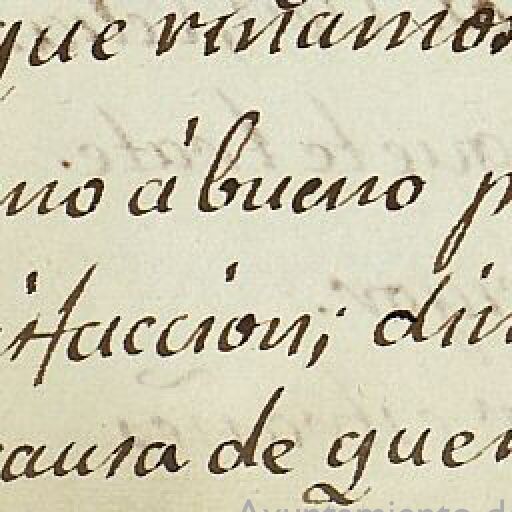 que riñamos
no á bueno p
isfaccion; din
causa de quer
Ayuntamiento d